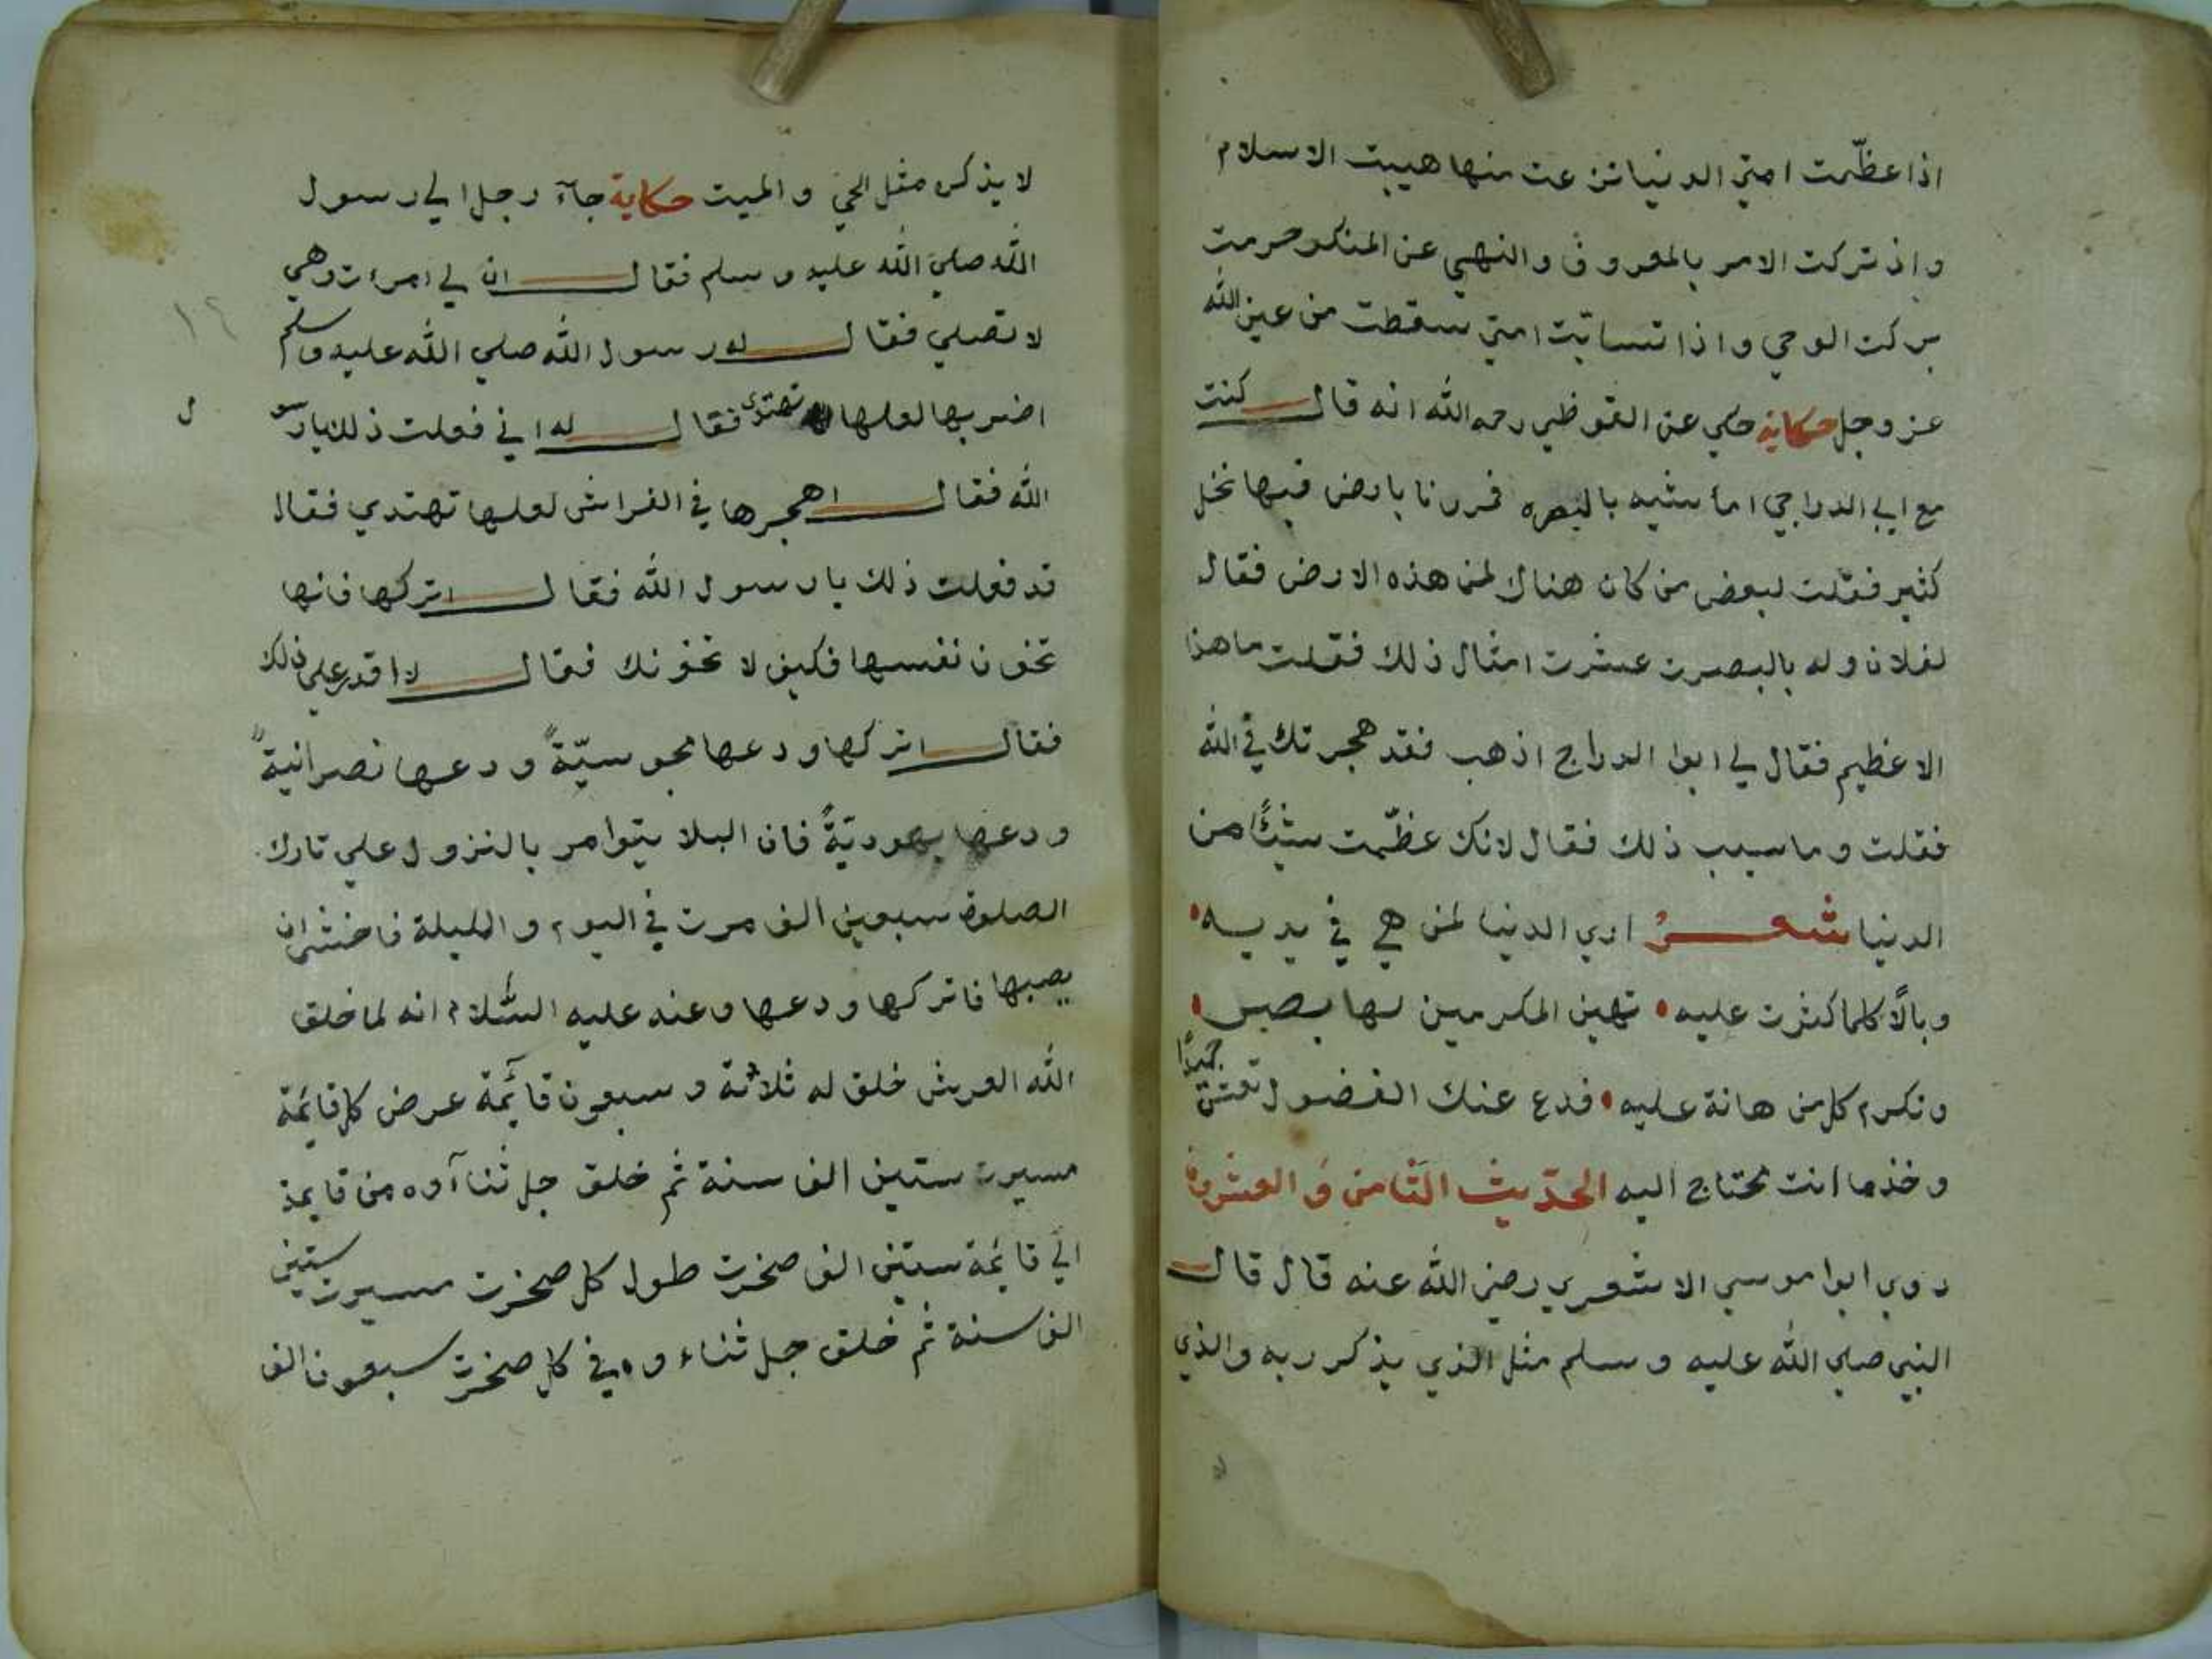 اذا عظّمت امتي الدنيا نزعت منها هيبت الاسلام
واذ تركت الامر بالمعروف والنهي عن المنكر حرمت
بركت الوحي واذا تسابّت امتي سقطت من عين الله
عز وجل حكاية حكي عن القرظي رحمه الله انه قال كنت
مع ابي الدراجي اماشيه بالبصره فمررنا بارض فيها نخل
كثير فقلت لبعض من كان هناك لمن هذه الارض فقال
لفلان وله بالبصرت عشرت امثال ذلك فقلت ما هذا
الا عظيم فقال لي ابوا الدراج اذهب فقد هجرتك في الله
فقلت وما سبب ذلك فقال لانك عظّمت شيئًا من
الدنيا شعرٌ اري الدنيا لمن هي في يديه
وبالًا كلما كثرت عليه تهين المكرمين لها بصبر
وتكرم كل من هانة عليه فدع عنك الفضول تعش حميدًا
وخذ ما انت تحتاج اليه الحديث الثامن والعشرون
روي ابوا موسي الاشعري رضي الله عنه قال قال
النبي صلي الله عليه وسلم مثل الذي يذكر ربه والذي
لا يذكره مثل الحيّ والميت حكاية جآء رجل الي رسول
الله صلي الله عليه وسلم فقال ان لي امرءت وهي
لا تصلي فقال له رسول الله صلي الله عليه وسلم
اضربها لعلها تهتدي فقال له اني فعلت ذلك يا رسول
الله فقال اهجرها في الفراش لعلها تهتدي فقال
قد فعلت ذلك يا رسول الله فقال اتركها فانها
تخون نفسها فكيف لا تخونك فقال لا اقدر علي ذلك
فقال اتركها ودعها مجوسيّةً ودعها نصرانيةً
ودعها يهوديّةً فان البلا يتوامر بالنزول علي تارك
الصلوة سبعين الف مرت في اليوم والليلة فاخشي ان
يصبها فاتركها ودعها وعنه عليه السّلام انه لما خلق
الله العرش خلق له ثلاثة وسبعون قآئمة عرض كل قائمة
مسيرت ستين الف سنة ثم خلق جل ثنآوه من قايمة
الي قائمة ستين الف صخرت طول كل صخرت مسيرت ستين
الف سنة ثم خلق جل ثناءوه في كل صخرت سبعون الف